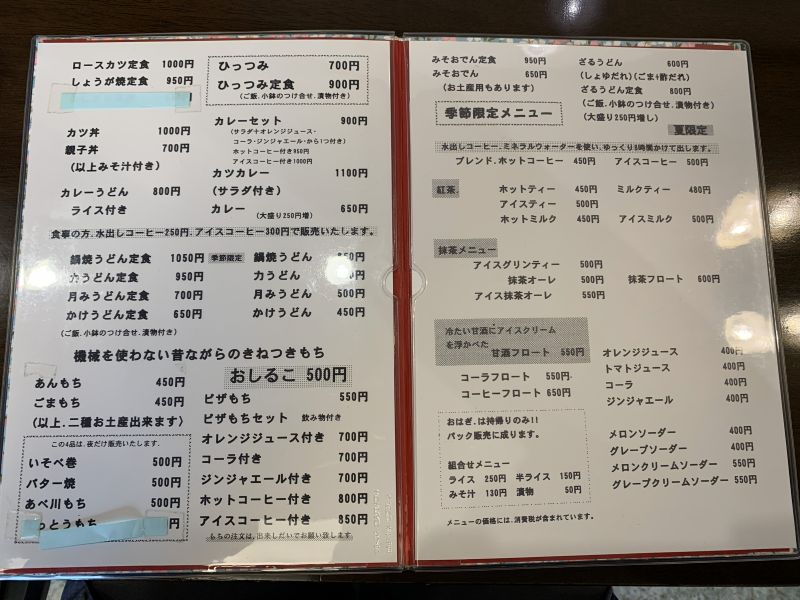 ロースカツ定食 1000円
しょうが焼定食 950円
カツ丼 1000円
親子丼 700円
(以上みそ汁付き)
カレーうどん 800円
ライス付き
ひっつみ 700円
ひっつみ定食 900円
(ご飯.小鉢のつけ合せ.漬物付き)
カレーセット 900円
(サラダ+オレンジジュース・
コーラ・ジンジャエール・から1つ付き)
ホットコーヒー付き950円
アイスコーヒー付き1000円
カツカレー 1100円
(サラダ付き)
カレー 650円
(大盛り250円増)
食事の方.水出しコーヒー250円.アイスコーヒー300円で販売いたします。
鍋焼うどん定食 1050円 季節限定
力うどん定食 950円
月みうどん定食 700円
かけうどん定食 650円
(ご飯.小鉢のつけ合せ.漬物付き)
鍋焼うどん
力うどん
月みうどん 500円
かけうどん 450円
機械を使わない昔ながらのきねつきもち
おしるこ 500円
あんもち 450円
ごまもち 450円
(以上.二種お土産出来ます)
この4品は.夜だけ販売いたします.
いそべ巻 500円
バター焼 500円
あべ川もち 500円
っとうもち 円
ピザもち 550円
ピザもちセット 飲み物付き
オレンジジュース付き 700円
コーラ付き 700円
ジンジャエール付き 700円
ホットコーヒー付き 800円
アイスコーヒー付き 850円
もちの注文は.出来しだいでお願い致します
みそおでん定食 950円
みそおでん 650円
(お土産用もあります)
季節限定メニュー
ざるうどん 600円
(しょゆだれ)(ごま+酢だれ)
ざるうどん定食 800円
(ご飯.小鉢のつけ合せ.漬物付き)
(大盛り250円増し)
夏限定
水出しコーヒー.ミネラルウォーターを使い.ゆっくり8時間かけて出します。
ブレンド.ホットコーヒー 450円 アイスコーヒー 500円
紅茶. ホットティー 450円 ミルクティー 480円
アイスティー 500円
ホットミルク 450円 アイスミルク 500円
抹茶メニュー
アイスグリンティー 500円
抹茶オーレ 500円 抹茶フロート 600円
アイス抹茶オーレ 550円
冷たい甘酒にアイスクリーム
を浮かべた
甘酒フロート 550円
コーラフロート 550円
コーヒーフロート 650円
おはぎ.は持帰りのみ!!
パック販売に成ります。
組合せメニュー
ライス 250円 半ライス 150円
みそ汁 130円 漬物 50円
オレンジジュース 400円
トマトジュース 400円
コーラ 400円
ジンジャエール 400円
メロンソーダー 400円
グレープソーダー 400円
メロンクリームソーダー 550円
グレープクリームソーダー 550円
メニューの価格には.消費税が含まれています。